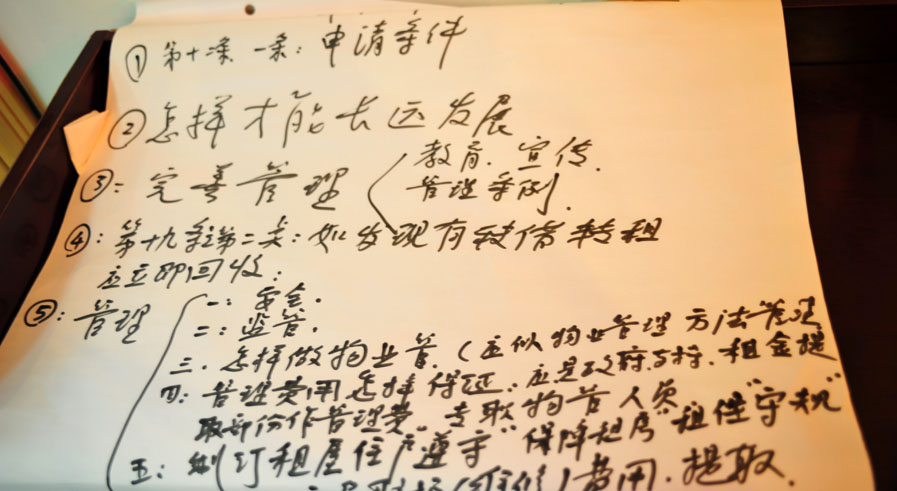 ① 第十条 一条：申请条件
② 怎样才能长远发展
③：完善管理 教育．宣传．
管理条例．
④：第十九条第二关：如发现有转借转租
应立即回收：
⑤：管理 一：安全．
二：监管．
三．怎样做物业管．（应似物业管理方法管理
四：管理费用怎样保证．应是政府支持．租金提
取部份作管理费 专职物管人员
五：制订租屋住户"遵守"保障租房"租住守规"
费用．提取